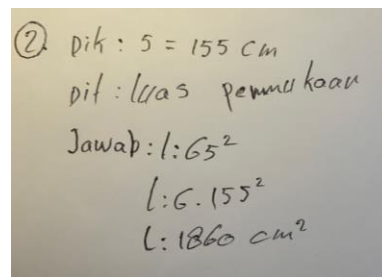 ② Dik : S = 155 cm
Dit : luas permukaan
Jawab : l : 6s²
l : 6 . 155²
l : 1860 cm²